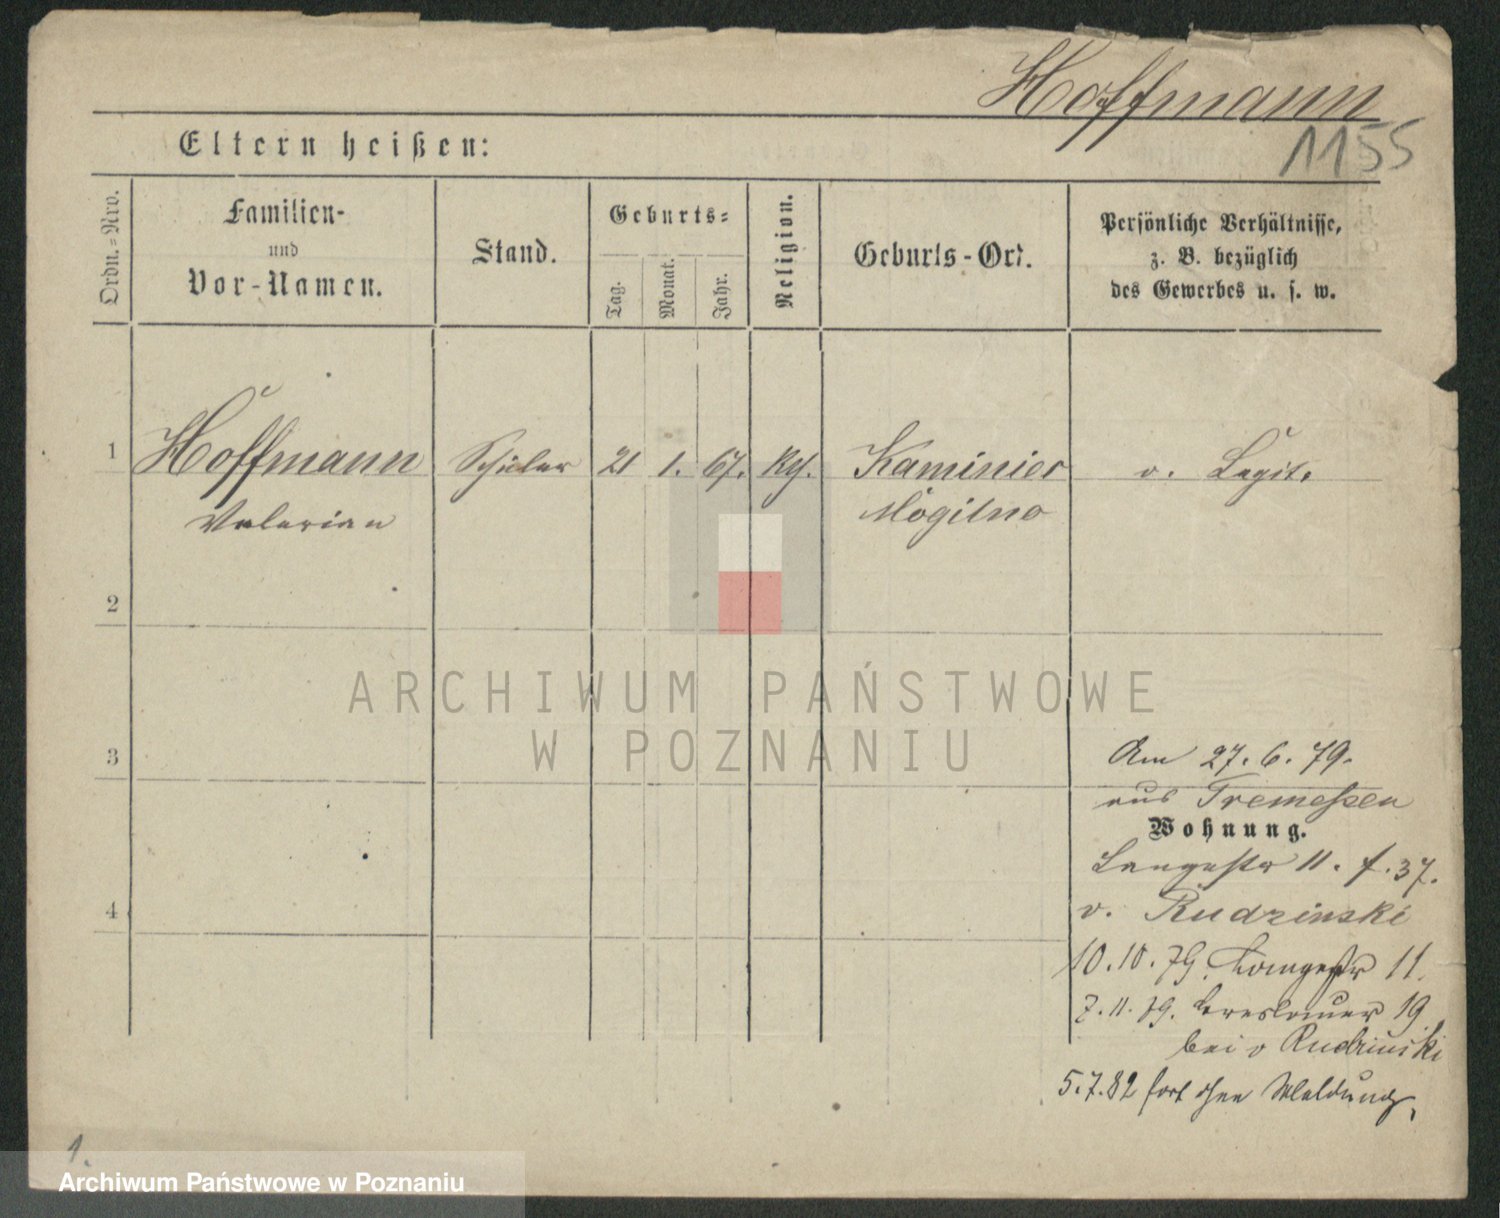 Hoffmann
1155
Eltern heißen:
Ordn.=Nro.
Familien-
und
Vor-Namen.
Stand.
Geburts=
Tag.
Monat.
Jahr.
Religion.
Geburts-Ort.
Persönliche Verhältnisse,
z. B. bezüglich
des Gewerbes u. s. w.
1 Hoffmann Schüler 21 1. 67. Kth. Kaminiec o. Legit.
Valerian Mogilno
2
3
4
Am 27. 6. 79.
aus Tremeßen
Wohnung.
Langestr 11. f. 37.
v. Rudzinski
10.10.79. Langestr 11.
7.11.79. Breslauer 19
bei v Rudzinski
5.7.82 fort ohne Meldung,
1.
ARCHIWUM PAŃSTWOWE
W POZNANIU
Archiwum Państwowe w Poznaniu